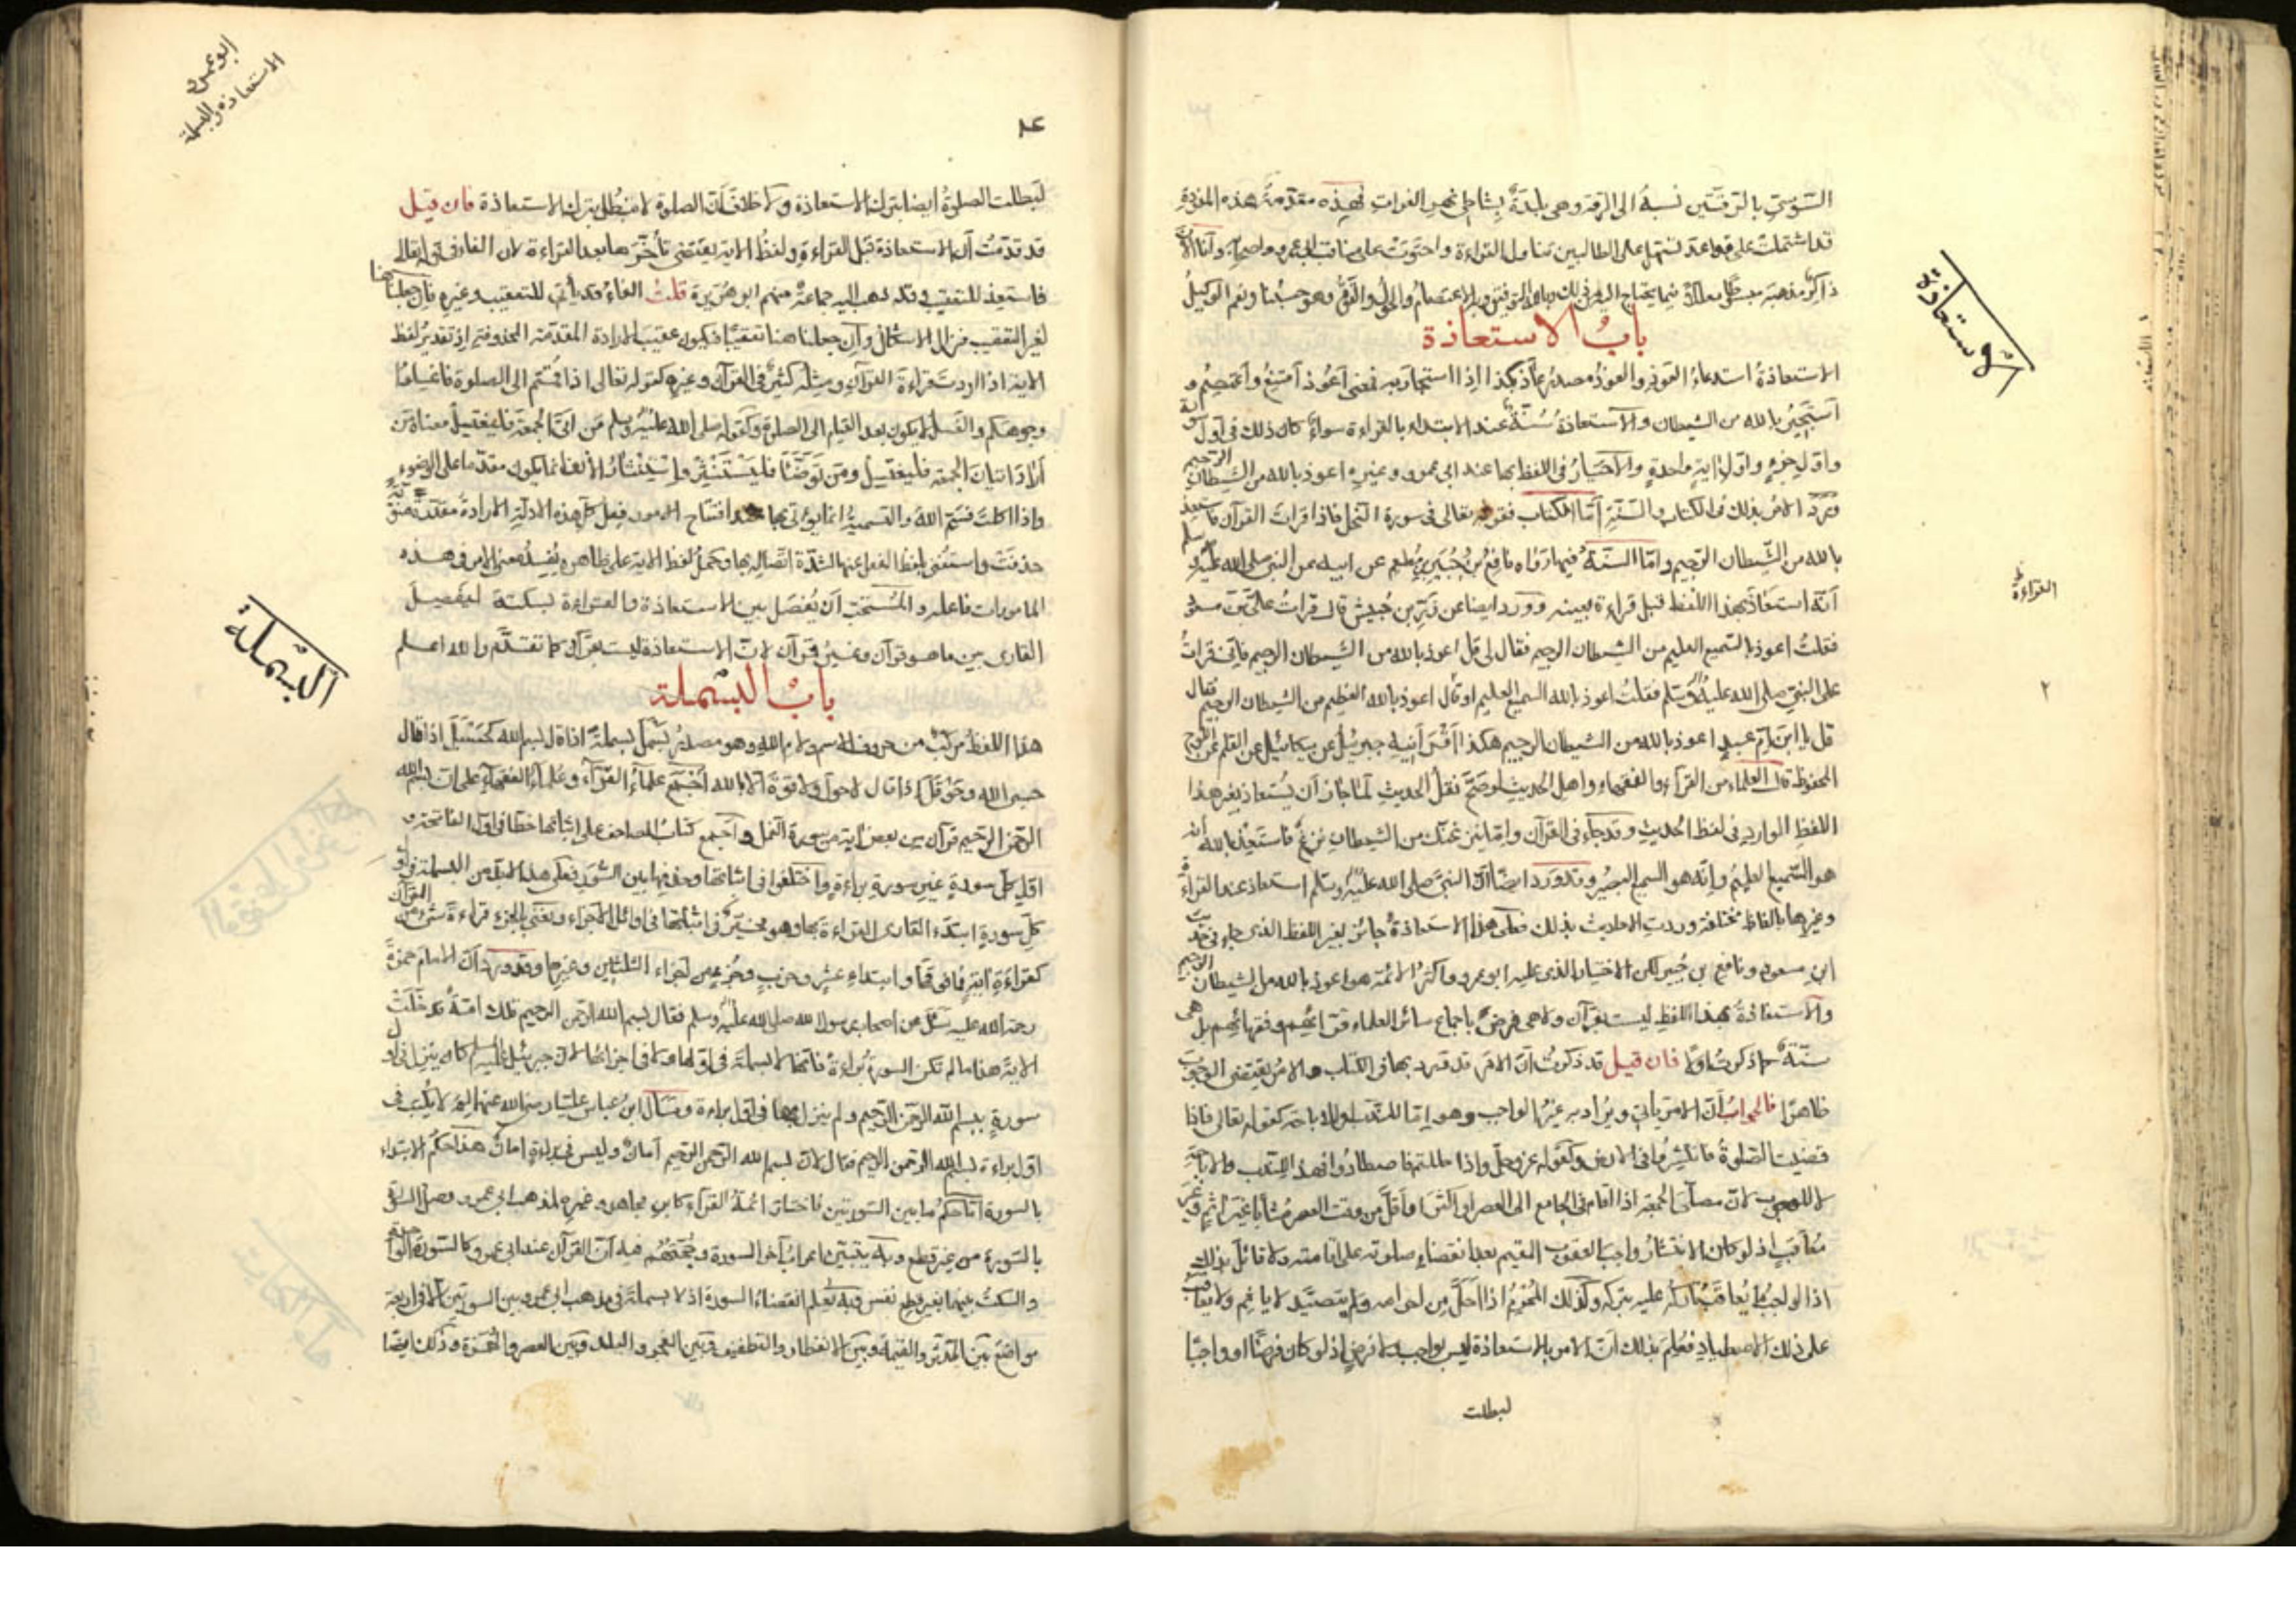 السوسي بالرقتين نسبة الى الرقة وهى بليدة بشاطى نهر الفرات فهذه مقدمة هذه المفردة
قد اشتملت على قواعد تسهل على الطالبين تناول القراءة واحتوت على مناقب ابى عمرو وانا الان
ذاكر مذهبه مبسطا معللا فيما يحتاج اليه من ذلك وبالله التوفيق وبه الاعتصام والحول والقوة وهو حسبنا ونعم الوكيل
باب الاستعاذة
الاستعاذة استدعاء العوذ والعوذ مصدر عاذ بكذا اذا استجار به فمعنى اعوذ امتنع واعتصم و
استجير بالله من الشيطان والاستعاذة سنة عند الابتداء بالقراءة سواء كان ذلك فى اول سورة
واول جزء واول اية واحدة والاختيار فى اللفظ بها عند ابى عمرو وغيره اعوذ بالله من الشيطان الرجيم
ورد الامر بذلك فى الكتاب والسنة اما الكتاب فقوله تعالى فى سورة النحل فاذا قرات القرآن فاستعذ
بالله من الشيطان الرجيم واما السنة فيما رواه نافع بن جبير بن مطعم عن ابيه عن النبى صلى الله عليه وسلم
انه استعاذ بهذا اللفظ قبل قراءة بعينه وورد ايضا عن زر بن حبيش قال قرات على بن مسعود
فقلت اعوذ بالسميع العليم من الشيطان الرجيم فقال لى قل اعوذ بالله من الشيطان الرجيم فانى قرات
على النبى صلى الله عليه وسلم فقلت اعوذ بالله السميع العليم او قال اعوذ بالله العظيم من الشيطان الرجيم فقال
قل يا ابن ام عبد اعوذ بالله من الشيطان الرجيم هكذا اقرانيه جبريل عن ميكائيل عن القلم عن اللوح
المحفوظ قال العلماء من القراء والفقهاء واهل الحديث لو صح نقل الحديث لما جاز ان يستعاذ بغير هذا
اللفظ الوارد فى لفظ الحديث وقد جاء فى القرآن واما ينزغنك من الشيطان نزغ فاستعذ بالله انه
هو السميع العليم وانه هو السميع البصير وقد ورد ايضا ان النبى صلى الله عليه وسلم استعاذ عند القراءة
وغيرها بالفاظ مختلفة وردت الاحاديث بذلك فعلى هذا الاستعاذة جائز بغير اللفظ الذى جاء فى حديث
ابن مسعود ونافع بن جبير لكن الاختيار الذى عليه ابو عمرو واكثر الائمة هو اعوذ بالله من الشيطان الرجيم
والاستعاذة بهذا اللفظ ليست بقرآن ولا هى فرض باجماع سائر العلماء قرائهم وفقهائهم بل هى
سنة ذكرت اولا فان قيل قد ذكرت ان الامر قد ورد بها فى الكتاب والامر يقتضى الوجوب
ظاهرا فالجواب ان الامر ياتى ويراد به غير الواجب وهو اما للندب او للاباحة كقوله تعالى فاذا
قضيت الصلوة فانتشروا فى الارض وكقوله عز وجل واذا حللتم فاصطادوا فهذا للندب والاباحة
لا للوجوب لان مصلى الجمعة اذا اقام فى الجامع الى العصر او اكثر او اقل من وقت العصر مثابا غير اثم وغير
معاقب اذ لو كان الانتشار واجبا لعقوب المقيم بعد انقضاء صلوته على اقامته ولا قائل بذلك
اذا الواجب ما يعاقب تاركه عليه بتركه وكذلك المحرم اذا احل من احرامه ولم يتصيد لا ياثم ولا يعاقب
على ذلك الاصطياد فعلم بذلك ان الامر بالاستعاذة ليس بواجب ولا فرض اذ لو كان فرضا او واجبا
لبطلت
الاستعاذة
القراءة
٢
ابو عمرو
الاستعاذة والبسملة
لبطلت الصلوة ايضا بترك الاستعاذة ولا خلاف ان الصلوة لا تبطل بترك الاستعاذة فان قيل
قد قدمت ان الاستعاذة قبل القراءة ولفظ الاية يقتضى تأخرها بعد القراءة لان الفاء فى قوله تعالى
فاستعذ للتعقيب وقد ذهب اليه جماعة منهم ابو هريرة قلت الفاء قد يأتى للتعقيب وغيره فان جعلنا هنا
لغير التعقيب فزال الاشكال وان جعلنا هنا تعقيبا فيكون عقيب الارادة المقدمة المحذوفة اذ تقدير لفظ
الاية اذا اردت قراءة القرآن ومثله كثير فى القرآن وغيره كقوله تعالى اذا قمتم الى الصلوة فاغسلوا
وجوهكم والغسل لا يكون بعد القيام الى الصلوة وكقوله صلى الله عليه وسلم من اتى الجمعة فليغتسل معناه من
اراد اتيان الجمعة فليغتسل ومن توضأ فليستنثر والاستنثار انما يكون مقدما على الوضوء
واذا اكلت فسم الله والتسمية انما يؤتى بها عند افتتاح الامور فعلى كل هذه الادلة الارادة مقدرة
حذفت واستغنى بلفظ الفعل عنها لشدة اتصاله بها وحمل لفظ الاية على ظاهره يفسد معنى الامر فى هذه
المامورات فاعلم والمستحب ان يفصل بين الاستعاذة والقراءة بسكتة ليفصل
القارى بين ما هو قرآن وغير قرآن لان الاستعاذة ليست بقرآن كما تقدم والله اعلم
باب البسملة
هذا اللفظ مركب من حروف الاسم ولام الله وهو مصدر بسمل بسملة اذا قال بسم الله كحسبل اذا قال
حسبى الله وحوقل اذا قال لا حول ولا قوة الا بالله اجمع علماء القراء وعلماء الفقهاء على ان بسم الله
الرحمن الرحيم قرآن من بعض اية من سورة النمل واجمع كتاب المصاحف على اثباتها خطا فى اول الفاتحة و
اول كل سورة غير سورة براءة واختلفوا فى اثباتها وحذفها بين السور فعلى هذا لا بد من البسملة فى اول
كل سورة ابتدء القارى القراءة بها وهو مخير فى اثباتها فى اوائل الاجزاء ونعنى بالجزء قراءة شىء من القرآن
كقراءة اية فما فوقها وابتداء عشر وحزب وجزء من اجزاء الثلاثين وغيرها وقد ورد ان الامام حمزة
رحمة الله عليه سئل عن اصحاب رسول الله صلى الله عليه وسلم فقال بسم الله الرحمن الرحيم تلك امة قد خلت
الاية هذا ما لم تكن السورة براءة فانها لا بسملة فى اولها ولا فى اجزائها لان جبريل عليه السلم كان ينزل فى اول
سورة ببسم الله الرحمن الرحيم ولم ينزل بها فى اول براءة وسأل ابن عباس عليا رضى الله عنهما لم لا يكتب فى
اول براءة بسم الله الرحمن الرحيم فقال لان بسم الله الرحمن الرحيم امان وليس فى براءة امان هذا حكم الابتداء
بالسورة اما حكم ما بين السورتين فاختار ائمة القراء كابن مجاهد وغيره لمذهب ابى عمرو وصل السورة
بالسورة من غير قطع وبه يتبين اعراب آخر السورة وحجتهم فيه ان القرآن عند ابى عمرو كالسورة الواحدة
والسكت بينهما بغير قطع نفس وبه يعلم انقضاء السورة اذ لا بسملة فى مذهب ابى عمرو بين السورتين الا فى اربعة
مواضع بين المدثر والقيمة وبين الانفطار والتطفيف وبين الفجر والبلد وبين العصر والهمزة وذكر ايضا
البسملة